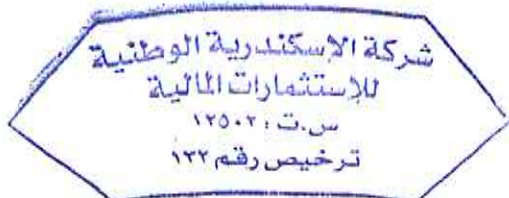 شركة الاسكندرية الوطنية
للإستثمارات المالية
س.ت : ١٢٥٠٢
ترخيص رقم ١٣٢